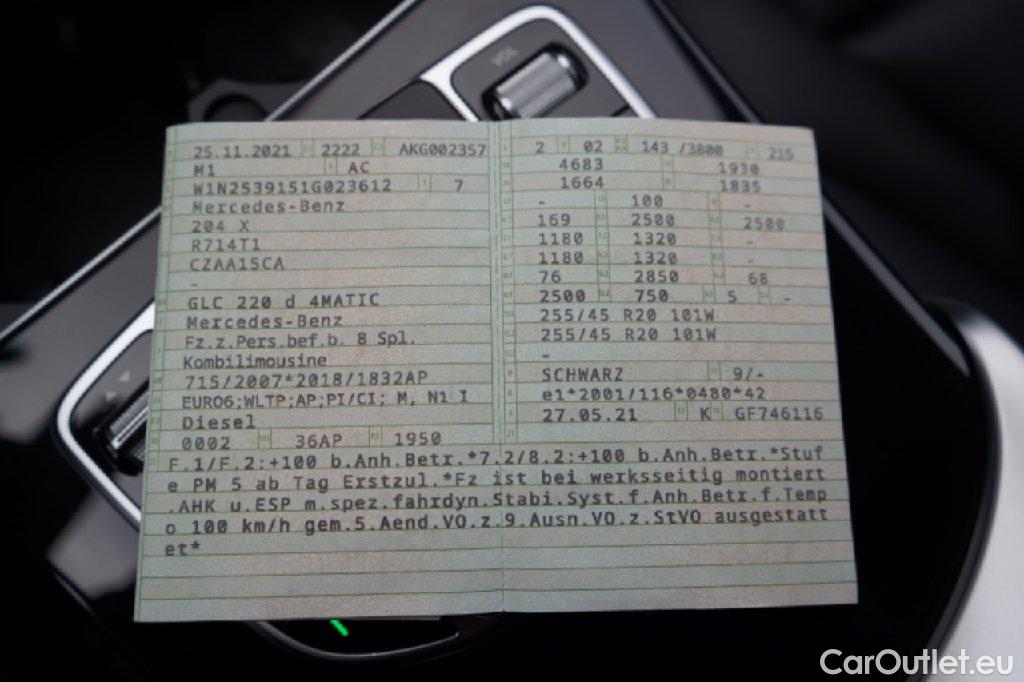 VOL
25.11.2021 2222 AKG002357
M1 AC
W1N2539151G023612 7
Mercedes-Benz
204 X
R714T1
CZAA15CA
-
GLC 220 d 4MATIC
Mercedes-Benz
Fz.z.Pers.bef.b. 8 Spl.
Kombilimousine
715/2007*2018/1832AP
EURO6;WLTP;AP;PI/CI; M, N1 I
Diesel
0002 36AP 1950
2 02 143 /3800 215
4683 1930
1664 1835
- 100 -
169 2500 2500
1180 1320 -
1180 1320 -
76 2850 68
2500 750 5 -
255/45 R20 101W
255/45 R20 101W
-
SCHWARZ 9/-
e1*2001/116*0480*42
27.05.21 K GF746116
F.1/F.2:+100 b.Anh.Betr.*7.2/8.2:+100 b.Anh.Betr.*Stuf
e PM 5 ab Tag Erstzul.*Fz ist bei werksseitig montiert
.AHK u.ESP m.spez.fahrdyn.Stabi.Syst.f.Anh.Betr.f.Temp
o 100 km/h gem.5.Aend.VO.z.9.Ausn.VO.z.StVO ausgestatt
et*
CarOutlet.eu